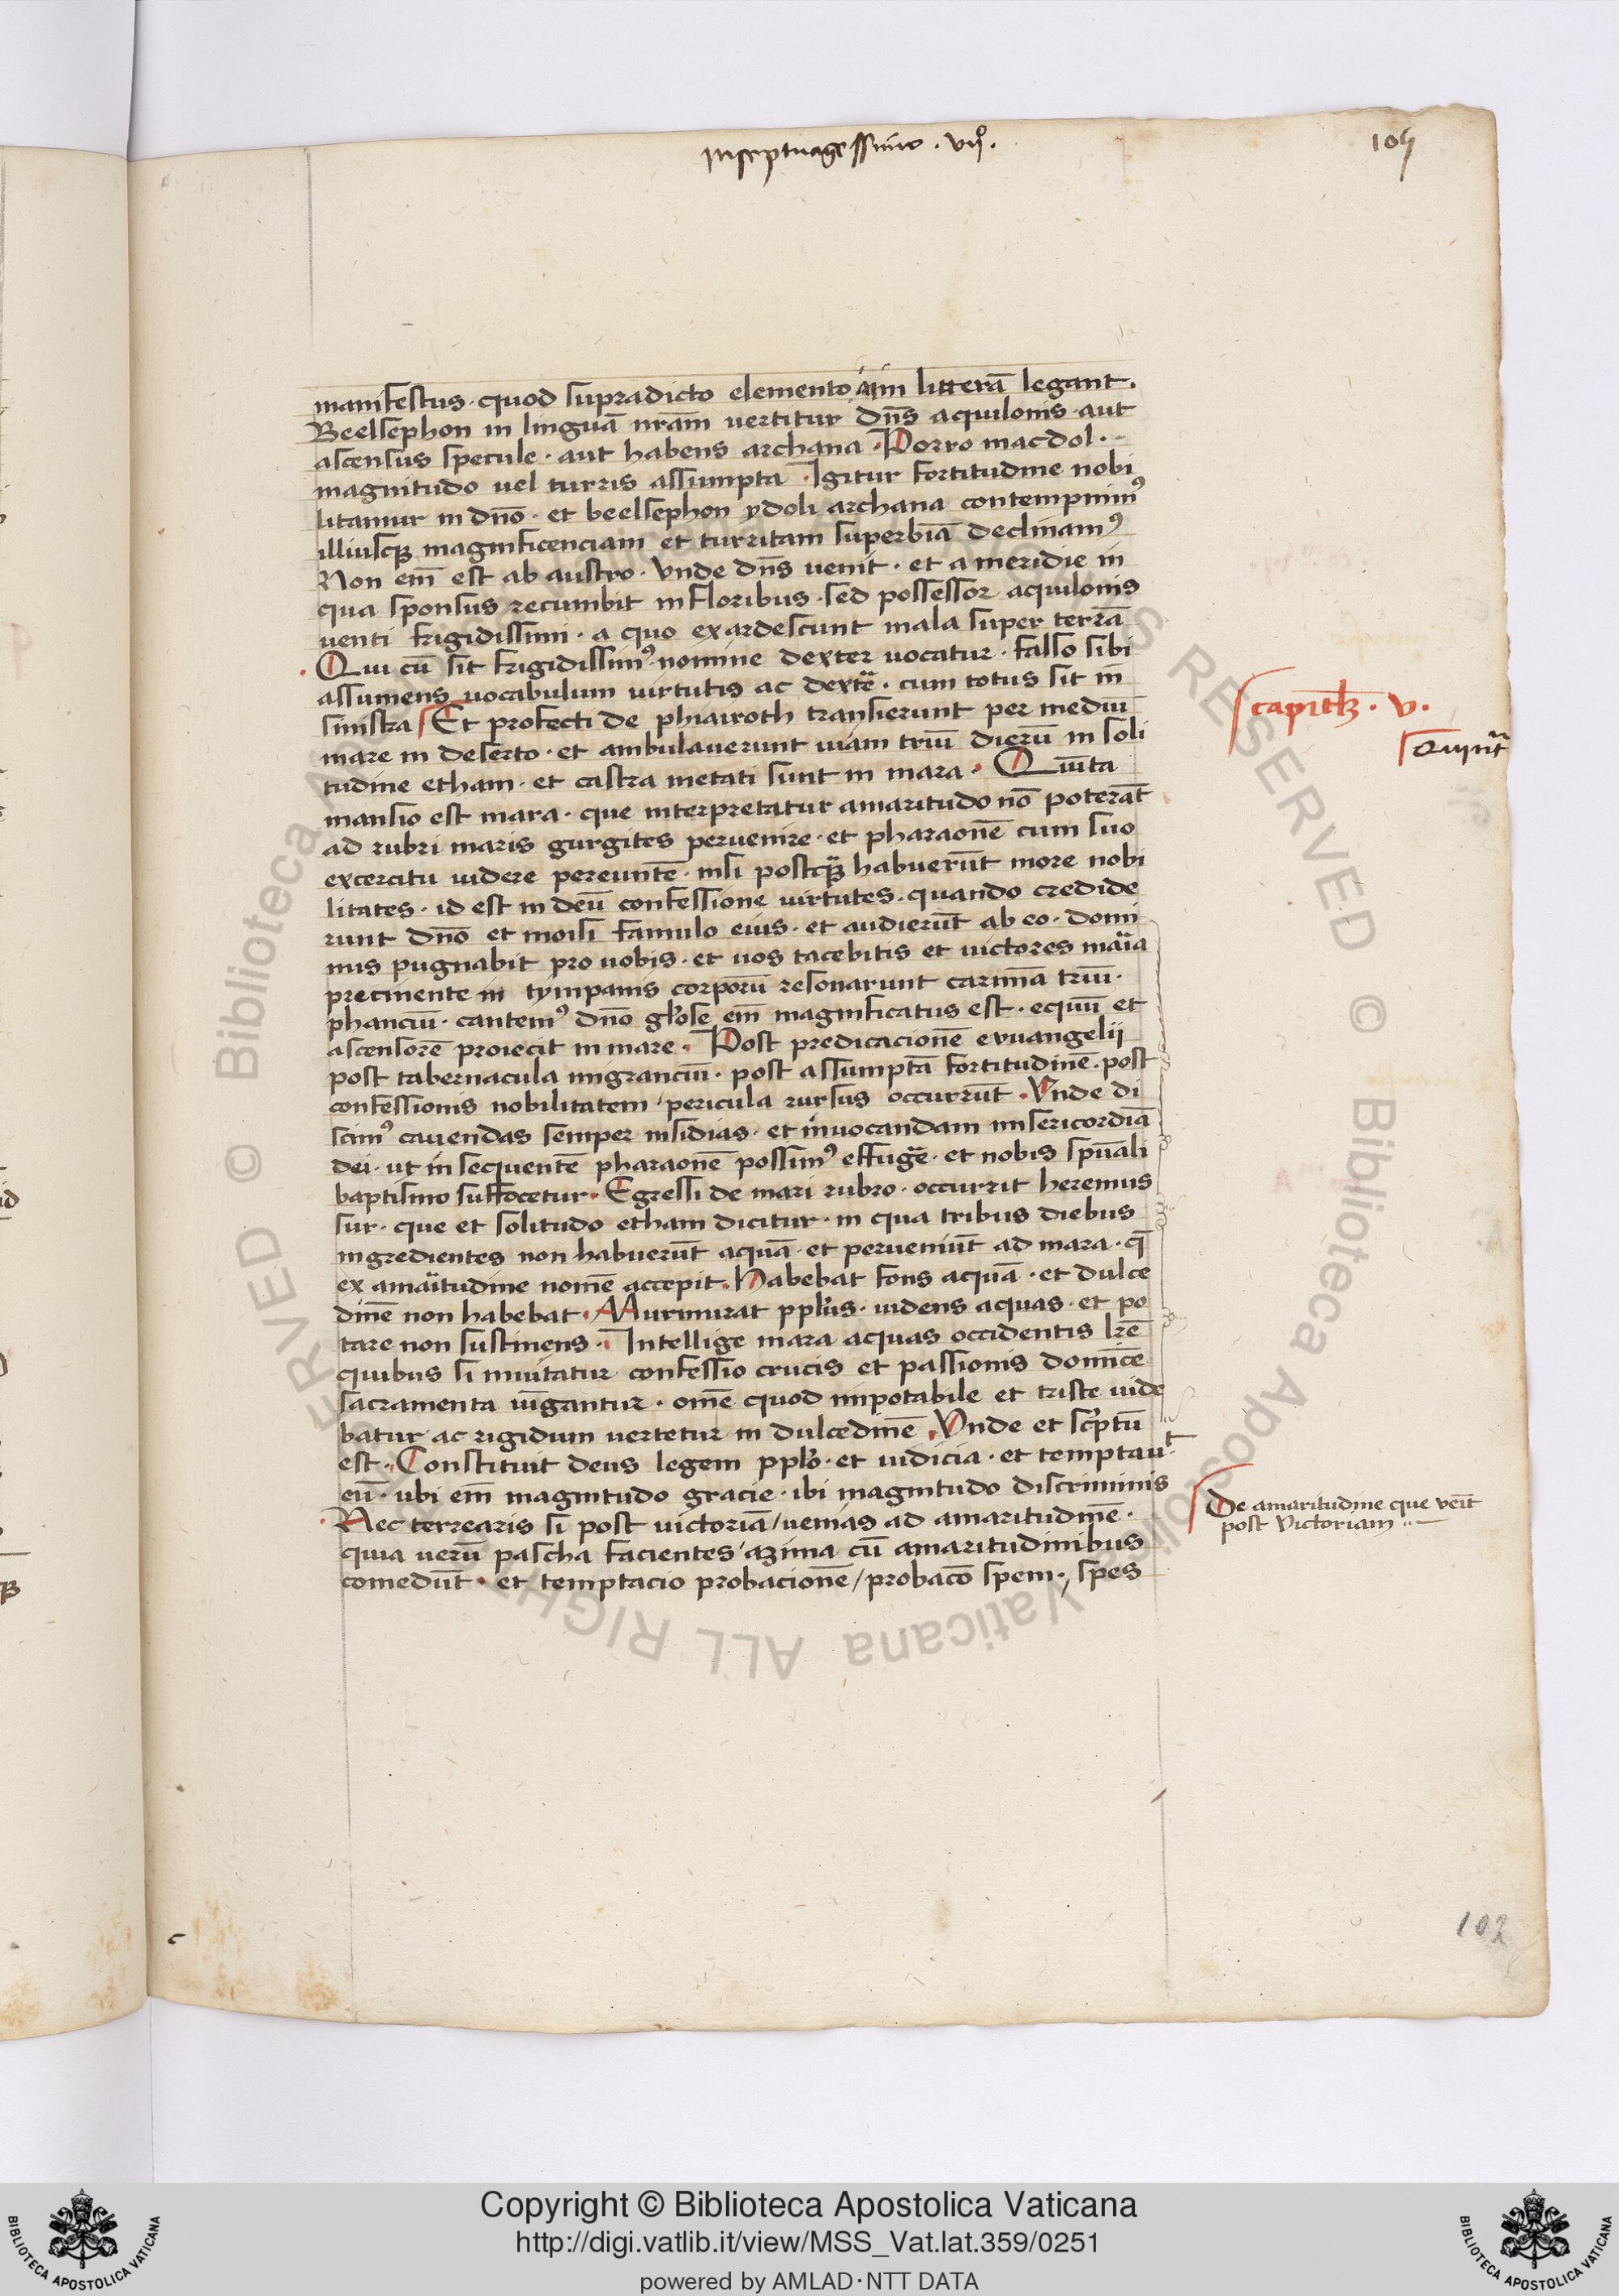 In septuagessimo . vijº.
109
manifestus · quod supradicto elemento ain litterā legant .
Beelsephon in linguā nrām vertitur dn̄s aquilonis · aut
ascensus specule · aut habens archana · Porro macdol ·
magnitudo uel turris assumpta · Igitur fortitudine nobi
litamur in dn̄o · et beelsephon ydoli archana contempnimꝰ
illiusqꝫ magnificenciam et turritam superbiā declinamꝰ
Non em̄ est ab austro · vnde dn̄s uenit · et a meridie in
qua sponsus recumbit in floribus · sed possessor aquilonis
venti frigidissimi · a quo exardescunt mala super terrā
Qui cū sit frigidissimꝰ nomine dexter uocatur · falso sibi
assumens uocabulum virtutis ac dextre · cum totus sit in
sinistra Et profecti de phiairoth transierunt per mediū
mare in deserto · et ambulauerunt uiam triū dierū in soli
tudine etham · et castra metati sunt in mara · Quīta
mansio est mara · que interpretatur amaritudo nō poterāt
ad rubri maris gurgites peruenire · et pharaonē cum suo
excercitu uidere pereuntē · nisi postqꝫ habuerūt more nobi
litates · id est in deū confessione virtutes · quando credide
runt dn̄o et moisi famulo eius · et audierūt ab eo · domi
nus pugnabit pro uobis · et uos tacebitis et victores maria
precinente in tympanis corporū resonarunt carmīa triū ·
phanciū · cantemꝰ dn̄o glōse em̄ magnificatus est · equū et
ascensorē proiecit in mare · Post predicacionē evuangelii
post tabernacula migranciū · post assumptā fortitudinē · post
confessionis nobilitatem / pericula rursus occurrūt · Vnde di
scimꝰ cauendas semper insidias · et inuocandam misericordiā
dei · ut insequentē pharaonē possimꝰ effugere · et nobis spūali
baptismo suffocetur · Egressi de mari rubro · occurrit heremus
sur · que et solitudo etham dicitur · in qua tribus diebus
ingredientes non habuerūt aquā · et perueniūt ad mara · q̄
ex amaritudine nomē accepit · Habebat fons aquā · et dulce
dinē non habebat · Murmurat pplūs · uidens aquas · et po
tare non sustinens · Intellige mara aquas occidentis lrē
quibus si mittatur confessio crucis et passionis dominicē
sacramenta iūgantur · omē quod impotabile et triste uide
batur ac rigidum uertetur in dulcedinē · Vnde et scptū
est · Constituit deus legem pplō · et iudicia · et temptauit
eū · ubi em̄ magnitudo gracie · ibi magnitudo discriminis
Nec terrearis si post uictoriā / uenias ad amaritudinē ·
quia uerū pascha facientes / azima cū amaritudinibus
comedūt · et temptacio probacionē / probacō spem · / spes
capitlꝫ . v.
Quinta
De amaritudine que venit
post victoriam
102
Copyright © Biblioteca Apostolica Vaticana
http://digi.vatlib.it/view/MSS_Vat.lat.359/0251
powered by AMLAD·NTT DATA
BIBLIOTECA APOSTOLICA VATICANA
BIBLIOTECA APOSTOLICA VATICANA